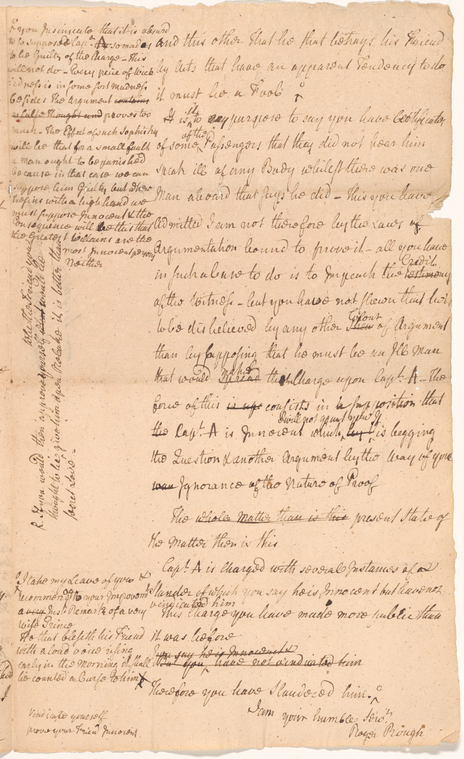 and this other that he that betrays his Friend
by acts that have an apparent Tendency to do
it must be a Fool
It is to no purpose to say you have Certificates
of some of the Passengers that they did not hear him
speak ill of any Body whilest there was one
Man aboard that says he did - this you have
admitted I am not therefore by the Laws of
Argumentation bound to prove it - all you have
in such a Case to do is to Impeach the Credit testimony
of the Witness - but you have not shewn that he is
to be disbelieved by any other of Argument
than by supposing that he must be an Ill Man
that would the Charge upon Capt. A - the
force of this is consists in a supposition that
the Capt. A is Innocent which is begging
the Question & another Argument by the way of your
Ignorance of the Nature of Proof
The whole matter then is this present State of
the Matter then is this
Capt. A is Charged with several Instances of
Slander of which you say he is Innocent but have not
vindicated him
This Charge you have made more publick than
it was before
you say he is Innocent
But you have not vindicated him
Therefore you have Slandered him
I am your humble Servt.
Roger Plough
If you Insinuate that it is absurd
to suppose Capt. A so mad as
to be Guilty of the Charge - this
will not do - Every peice of Wick
edness is in some sort madness
Besides the Argument contains
proves too
much - The Effect of such Sophistry
will be that for a small fault
a man ought to be punished
because in that case we can
suppose him Guilty but when
with a high hand we
must suppose Innocent & the
Consequence will be this that
the Greatest Villains are the
most Innocent
neither
I take my Leave of you &
recommend to your Improvem't
a Just Remark of a very
wise Prince
He that blesseth his Friend
with a loud voice rising
early in the Morning it shall
be counted a Curse to him
Vindicate yourself
prove your Friend Innocent